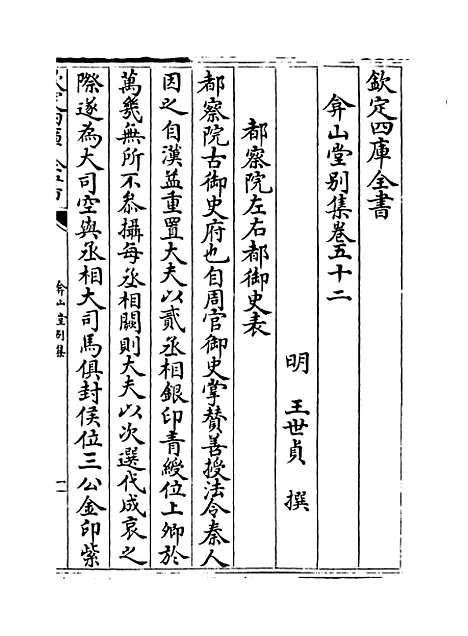 欽定四庫全書
弇山堂別集卷五十二
明 王世貞 撰
都察院左右都御史表
都察院古御史府也自周官御史掌贊善授法令秦人
因之自漢益重置大夫以貳丞相銀印青綬位上卿於
萬幾無所不叅攝每丞相闕則大夫以次選代成哀之
際遂為大司空與丞相大司馬俱封侯位三公金印紫
弇山堂別集
一